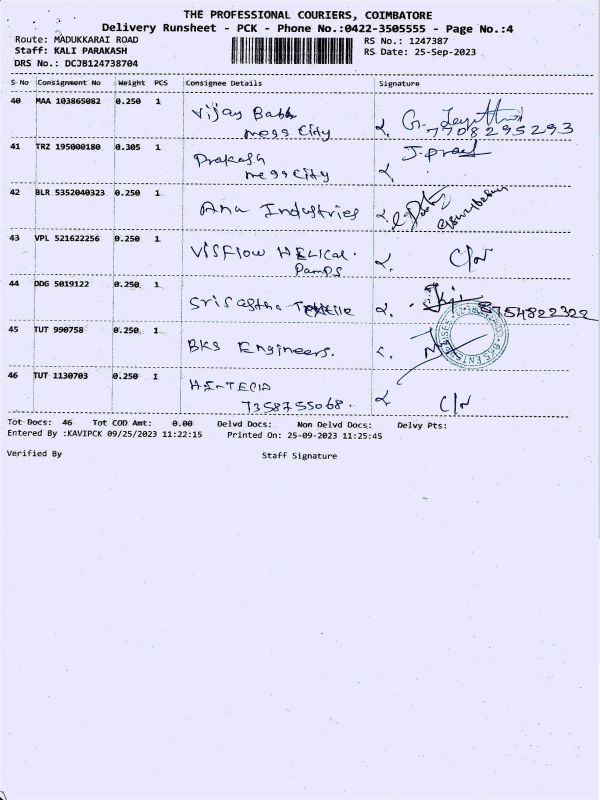 THE PROFESSIONAL COURIERS, COIMBATORE
Delivery Runsheet - PCK - Phone No.:0422-3505555 - Page No.:4
Route: MADUKKARAI ROAD
RS No.: 1247387
Staff: KALI PARAKASH
RS Date: 25-Sep-2023
DRS No.: DCJB124738704
S No Consignment No Weight PCS Consignee Details Signature
40 MAA 103865082 0.250 1 Vijay Babu
mess City
7708295293
41 TRZ 195000180 0.305 1 Prakash
mess City
42 BLR 5352040323 0.250 1 Anu Industries
43 VPL 521622256 0.250 1 VISFlow HELICAL
Pamps
44 DDG 5019122 0.250 1 Sri Sastha Textile 8754822322
45 TUT 990758 0.250 1 BKS Engineers.
46 TUT 1130703 0.250 1 HI-TECH
7358755068.
Tot Docs: 46 Tot COD Amt: 0.00 Delvd Docs: Non Delvd Docs: Delvy Pts:
Entered By :KAVIPCK 09/25/2023 11:22:15 Printed On: 25-09-2023 11:25:45
Verified By Staff Signature